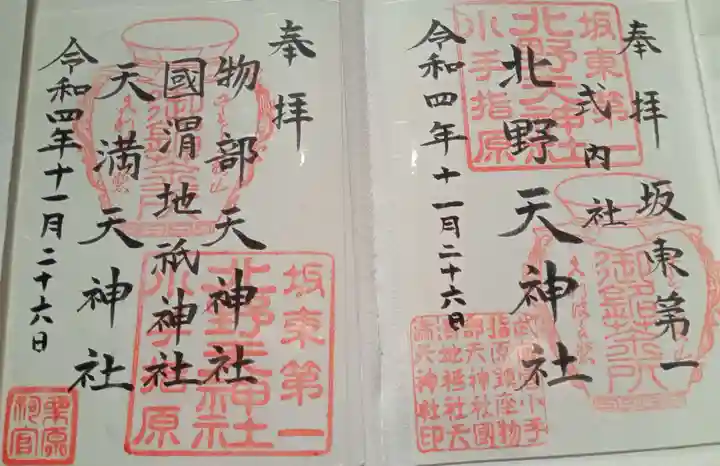 奉拝
坂東第一
式内社
北野天神社
令和四年十一月二十六日
坂東第一
北野天神社
小手指原
奉拝
物部天神社
國渭地祇神社
天満天神社
令和四年十一月二十六日
坂東第一
北野天神社
小手指原
栗原
祠官